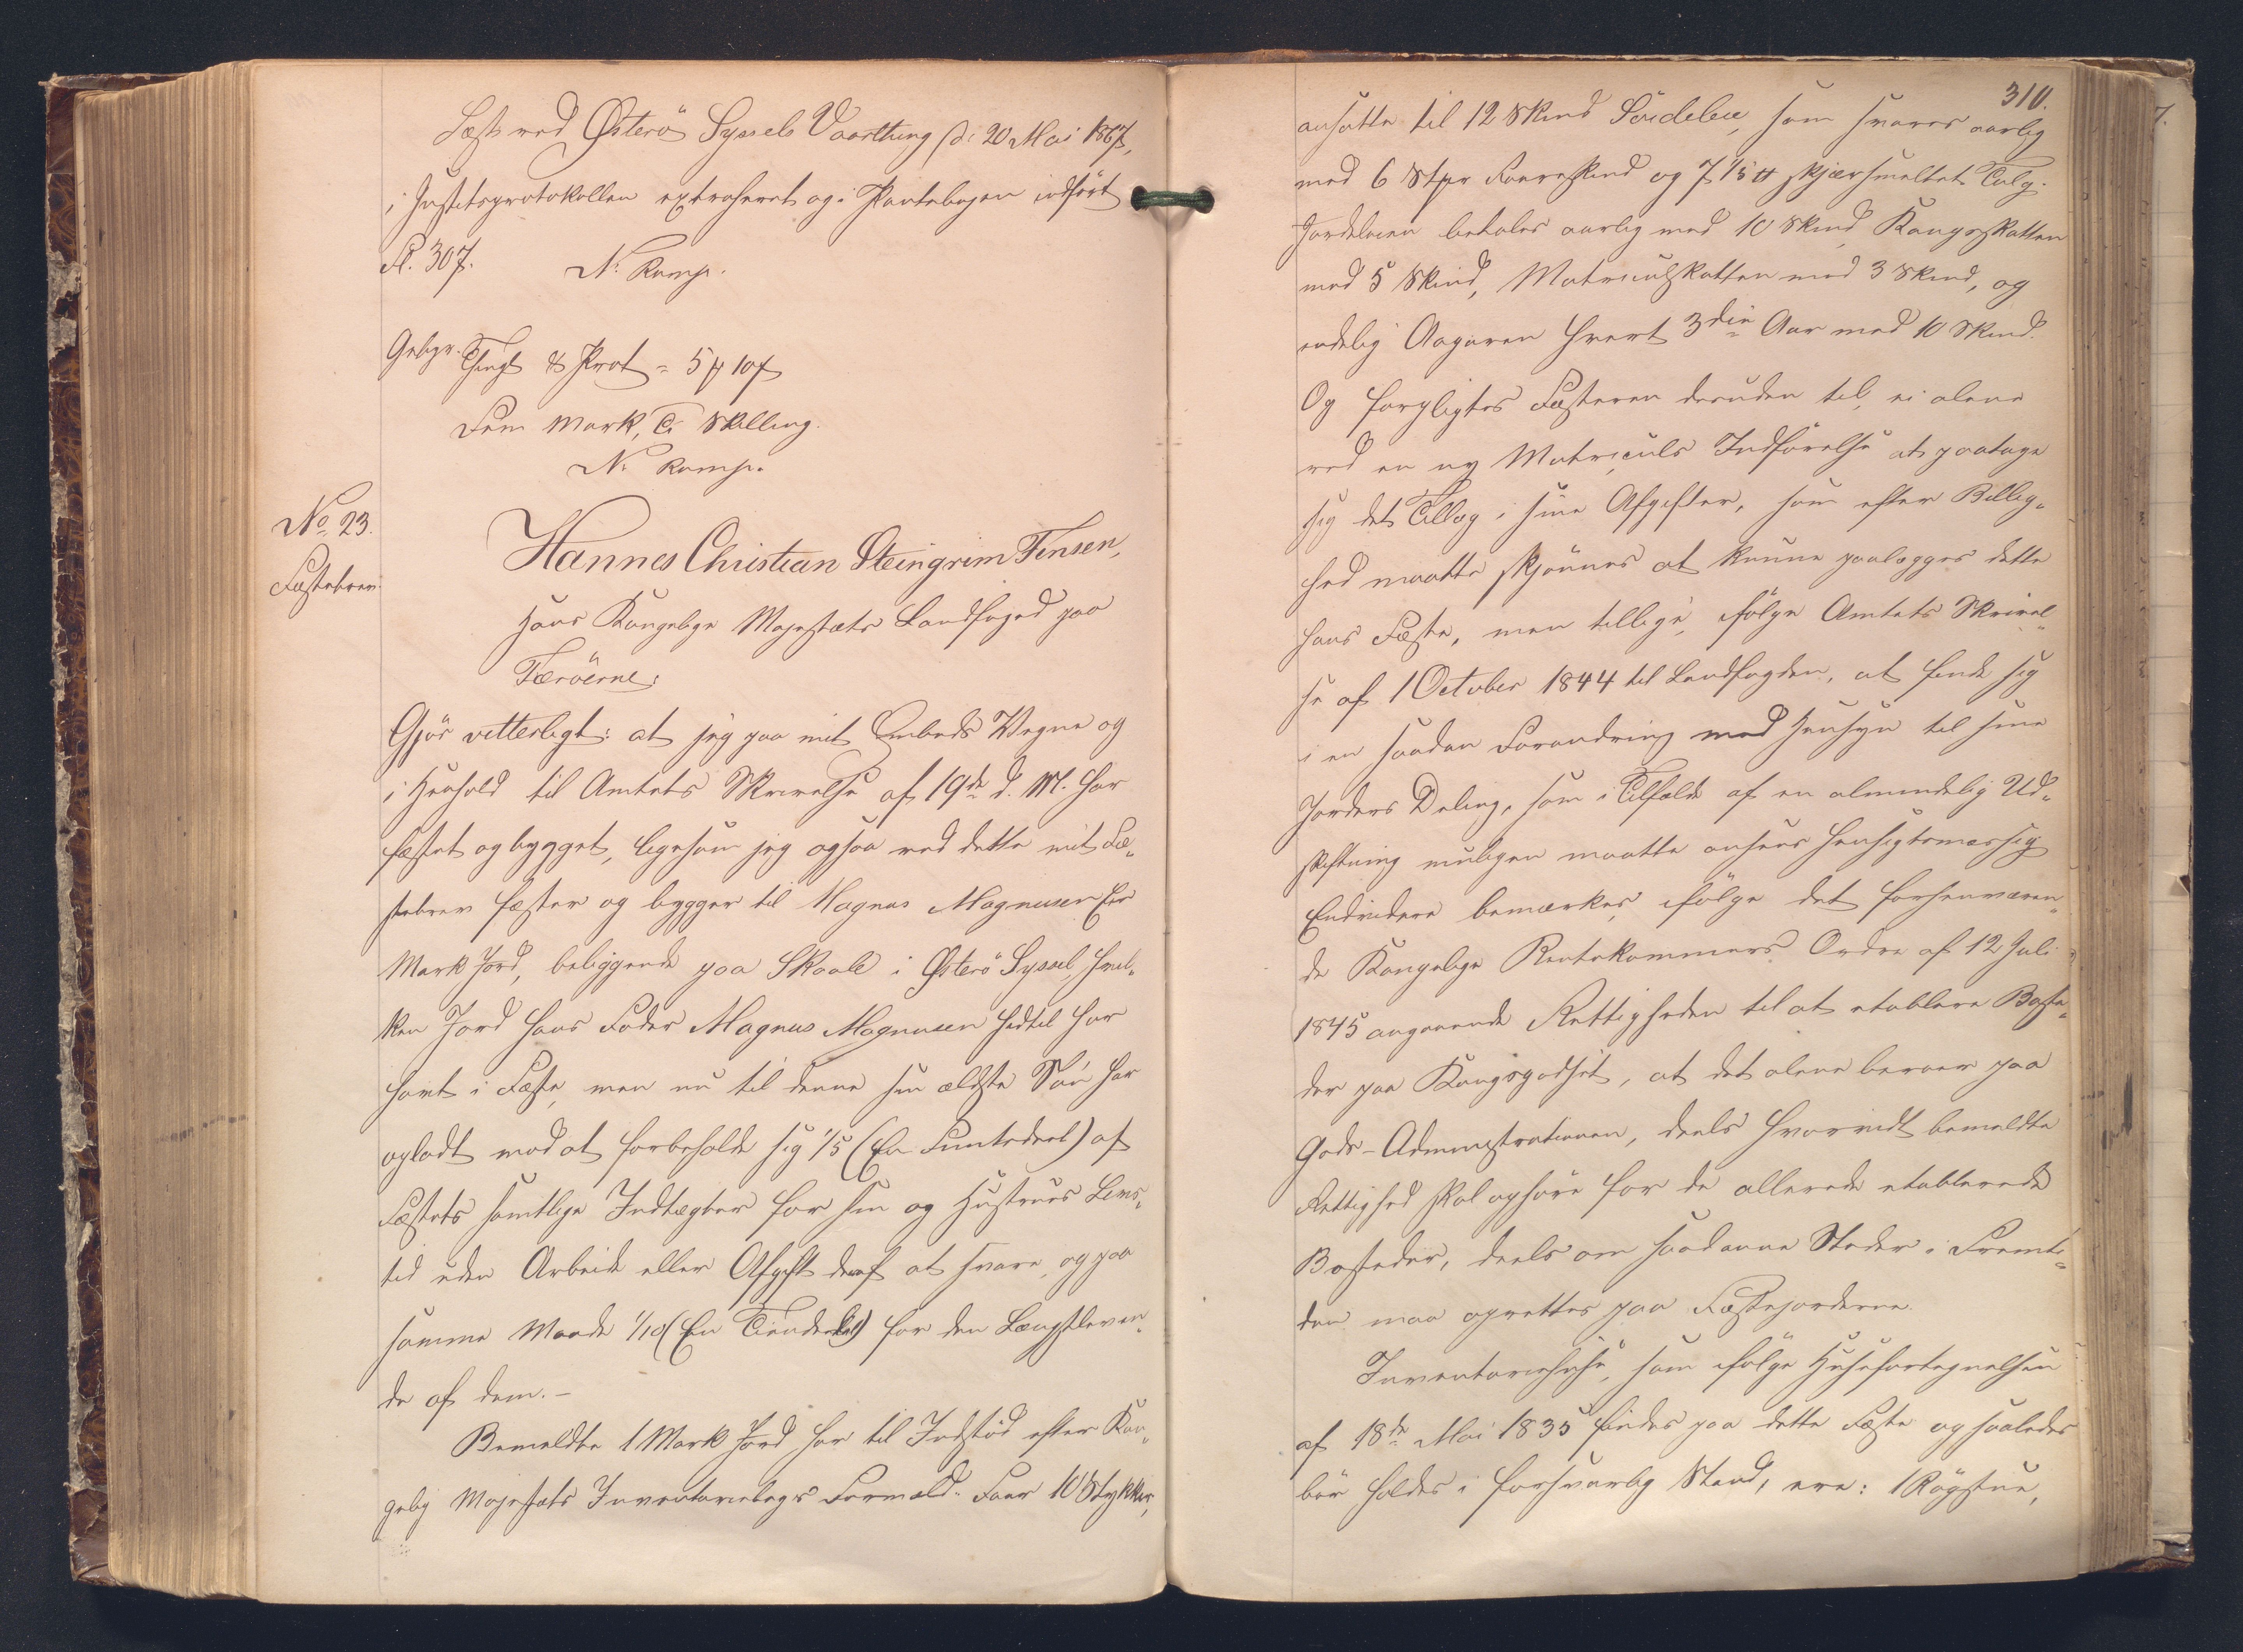 Læst ved Østerö Syssels Vaarthing d: 20 Mai 1867,
i Justitsprotokollen extraheret og i Pantebogen indført
Fl. 307. N. Kamp.
Gebyr. Thingl & Prot = 5 ꝟ 10 ß
Fem Mark, Ti Skilling.
N. Kamp.
No. 23.
Fæstebrev.
Hannes Christian Steingrim Finsen,
Hans Kongelige Majestæts Landfoged paa
Færöerne:
Gjör vitterligt: at jeg paa mit Embeds Vegne og
i Henhold til Amtets Skrivelse af 19de d. M. har
fæstet og bygget, ligesom jeg ogsaa ved dette mit Fæ-
stebrev fæster og bygger til Magnus Magnusen Een
Mark Jord, beliggende paa Skaale i Østerö Syssel, hvil-
ken Jord hans Fader Magnus Magnusen hidtil har
havt i Fæste, men nu til denne sin ældste Sön har
opladt mod at forbeholde sig 1/5 (En Femtedeel) af
Fæstets samtlige Indtægter for sin og Hustrues Levs-
tid uden Arbeide eller Afgift deraf at svare, og paa
samme Maade 1/10 (En Tiendedeel) for den Længstleven-
de af dem. -
Bemeldte 1 Mark Jord har til Indstöd efter Kon-
gelig Majestæts Inventariebogs Formeld: Faar 10 Stykker,
310.
ansatte til 12 Skind Söideleie, som svares aarlig
med 6 Stpr Faareskind og 7 1/5 ℔ skjærsmeltet Talg.
Jordeleien betales aarlig med 10 Skind, Kongsskatten
med 5 Skind, Matriculskatten med 3 Skind, og
endelig Aagaven hvert 3die Aar med 10 Skind.
Og forpligtes Fæsteren desuden til, ei alene
ved en ny Matriculs Indförelse at paatage
sig det Tillæg i sine Afgifter, som efter Billig-
hed maatte skjönnes at kunne paalægges dette
hans Fæste, men tillige, ifölge Amtets Skrivel-
se af 1 October 1844 til Landfogden, at finde sig
i en saadan Forandring med Hensyn til sine
Jorders Deling, som i Tilfælde af en almindelig Ud-
skiftning muligen maatte ansees hensigtsmæssig
Endvidere bemærkes, ifölge det forhenværen-
de Kongelige Rentekammers Ordre af 12 Juli
1845 angaaende Rettigheden til at etablere Boste-
der paa Kongsgodset, at det alene beroer paa
Gods-Administrationen, deels hvorvidt bemeldte
Rettighed skal ophöre for de allerede etablerede
Bosteder, deels om saadanne Steder i Fremti-
den maa oprettes paa Fæstejorderne.
Inventariehuse, som ifölge Husefortegnelsen
af 18de Mai 1835 findes paa dette Fæste og saaledes
bör holdes i forsvarlig Stand, ere: 1 Rögstue,